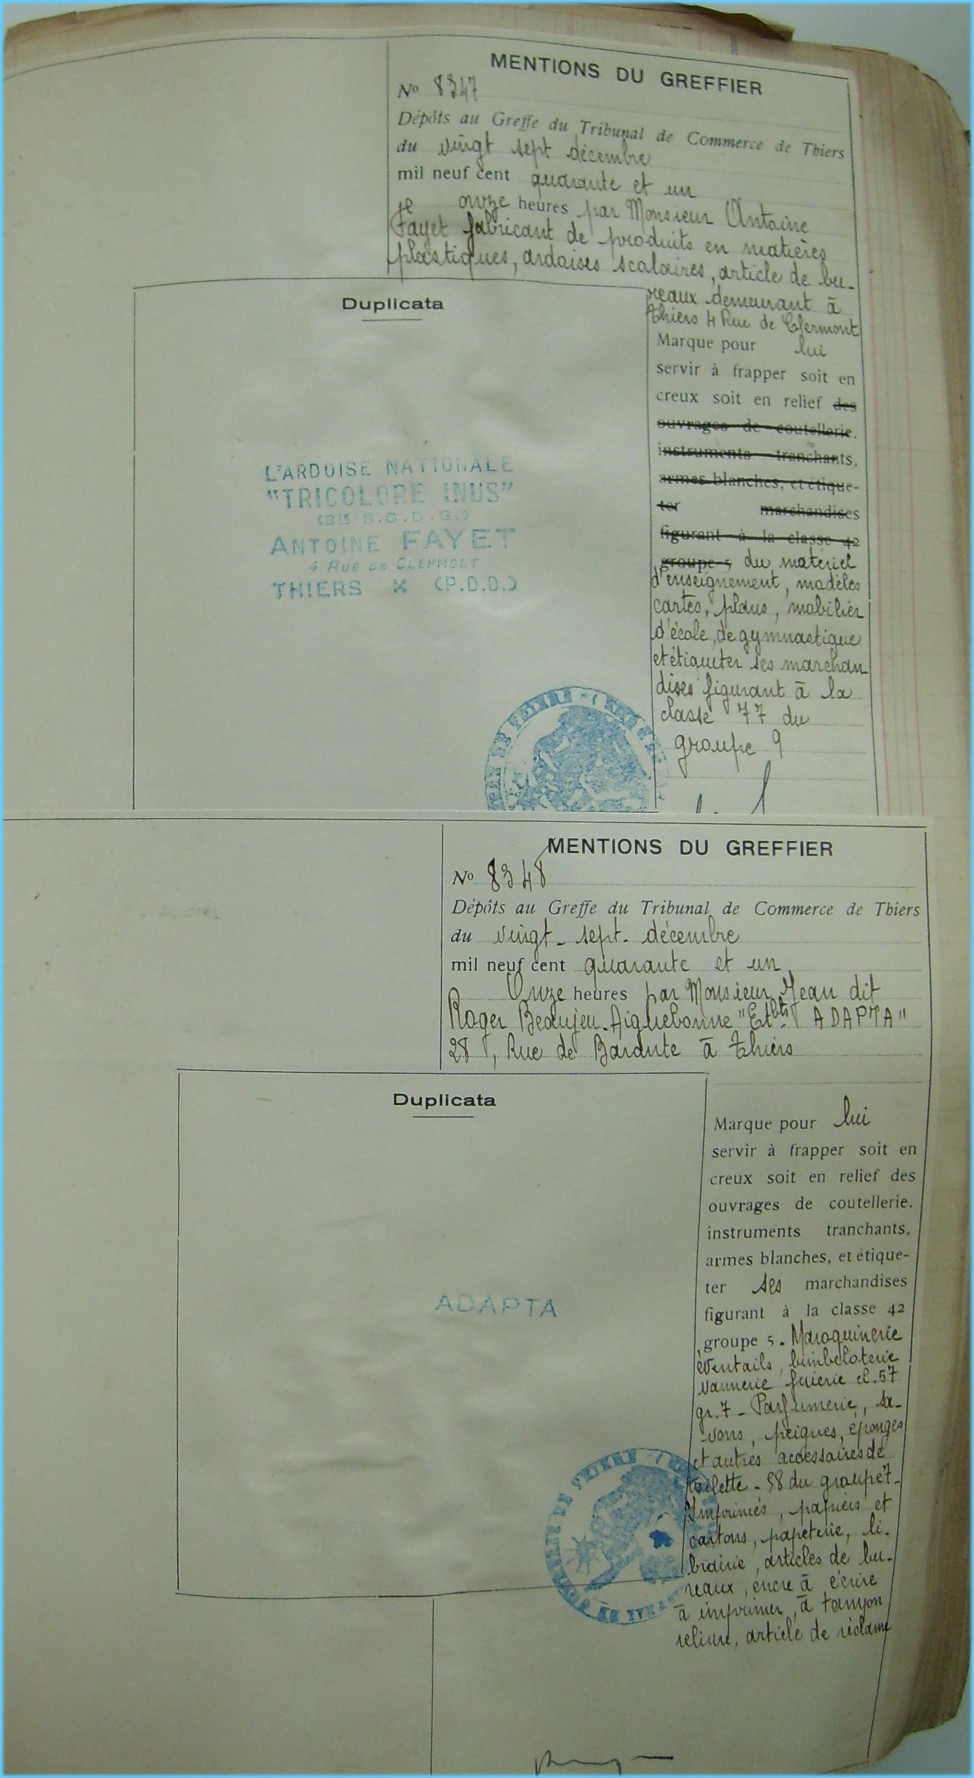 MENTIONS DU GREFFIER
No 8347
Dépôts au Greffe du Tribunal de Commerce de Thiers
du vingt sept décembre
mil neuf cent quarante et un
onze heures par Monsieur Antoine
Fayet fabricant de produits en matières
plastiques, ardoises scolaires, article de bu-
reaux demeurant à
Thiers 4 Rue de Clermont
Duplicata
L'ARDOISE NATIONALE
"TRICOLORE INUS"
(Bte S.G.D.G.)
ANTOINE FAYET
4 RUE DE CLERMONT
THIERS (P.D.D.)
Marque pour lui
servir à frapper soit en
creux soit en relief des
ouvrages de coutellerie,
instruments tranchants,
armes blanches, et étique-
ter marchandises
figurant à la classe 42
groupe 5 du matériel
d'enseignement, modèles
cartes, plans, mobilier
d'école, de gymnastique
et étiqueter ses marchan
dises figurant à la
classe 77 du
groupe 9
MENTIONS DU GREFFIER
No 8348
Dépôts au Greffe du Tribunal de Commerce de Thiers
du vingt-sept-décembre
mil neuf cent quarante et un
Onze heures par Monsieur Jean dit
Roger Beaujeu-Aiguebonne "Etbts ADAPTA"
28, Rue de Barante à Thiers
Duplicata
ADAPTA
Marque pour lui
servir à frapper soit en
creux soit en relief des
ouvrages de coutellerie.
instruments tranchants,
armes blanches, et étique-
ter ses marchandises
figurant à la classe 42
groupe 5. Maroquinerie
éventails, bimbeloterie
vannerie cl. 57
gr. 7 - Parfumerie, sa-
vons, peignes, éponges
et autres accessoires de
toilette - 58 du groupe 7-
Imprimés, papiers et
cartons, papeterie, li-
brairie, articles de bu-
reaux, encre à écrire
à imprimer, à tampon
reliure, article de réclame